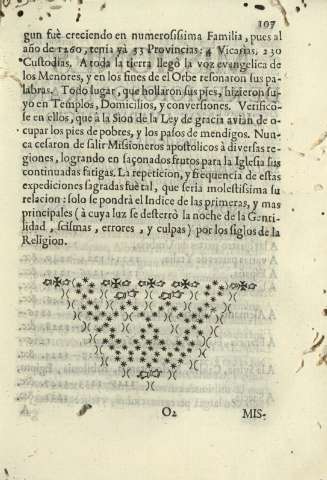 107
gun fuè creciendo en numerosissima Familia, pues al
año de 1260, tenia yà 33 Provincias: 4 Vicarias, 230
Custodias. A toda la tierra llegò la voz evangelica de
los Menores, y en los fines de el Orbe resonaron sus pa-
labras. Todo lugar, que hollaron sus pies, hizieron su-
yo en Templos, Domicilios, y conversiones. Verificó-
se en ellos, que à la Sion de la Ley de gracia avian de o-
cupar los pies de pobres, y los pasos de mendigos. Nun-
ca cesaron de salir Misioneros apostolicos à diversas re-
giones, logrando en saçonados frutos para la Iglesia sus
continuadas fatigas. La repeticion, y frequencia de estas
expediciones sagradas fuè tal, que seria molestissima su
relacion: solo se pondrà el Indice de las primeras, y mas
principales (à cuya luz se desterrò la noche de la Genti-
lidad, scismas, errores, y culpas) por los siglos de la
Religion.
O2
MIS-